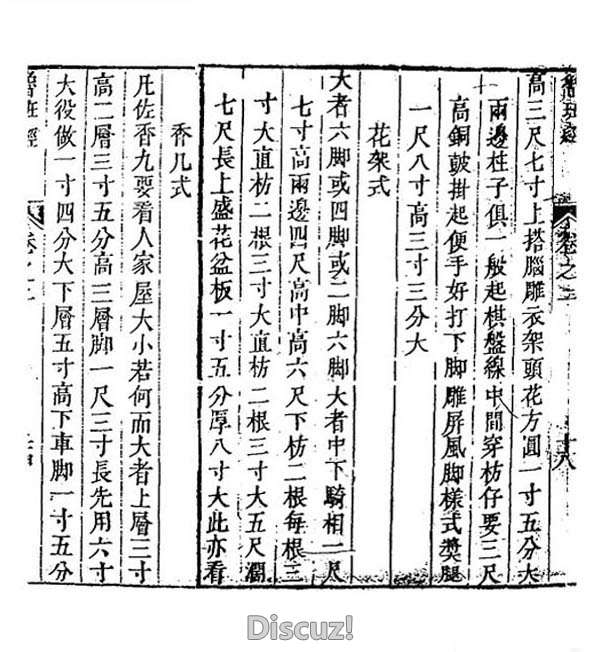 魯班經
卷之二
十八
高三尺七寸上搭腦雕衣架頭花方圓一寸五分大
兩邊柱子俱一般起棋盤線中間穿枋仔要三尺
高銅皷掛起便手好打下脚雕屏風脚樣式獎腿
一尺八寸高三寸三分大
花架式
大者六脚或四脚或二脚六脚大者中下騎相一尺
七寸高兩邊四尺高中高六尺下枋二根每根三
寸大直枋二根三寸大直枋二根三寸大五尺濶
七尺長上盛花盆板一寸五分厚八寸大此亦看
香几式
凡佐香九要看人家屋大小若何而大者上層三寸
高二層三寸五分高三層脚一尺三寸長先用六寸
大役做一寸四分大下層五寸高下車脚一寸五分
魯班經
卷之二
Discuz!